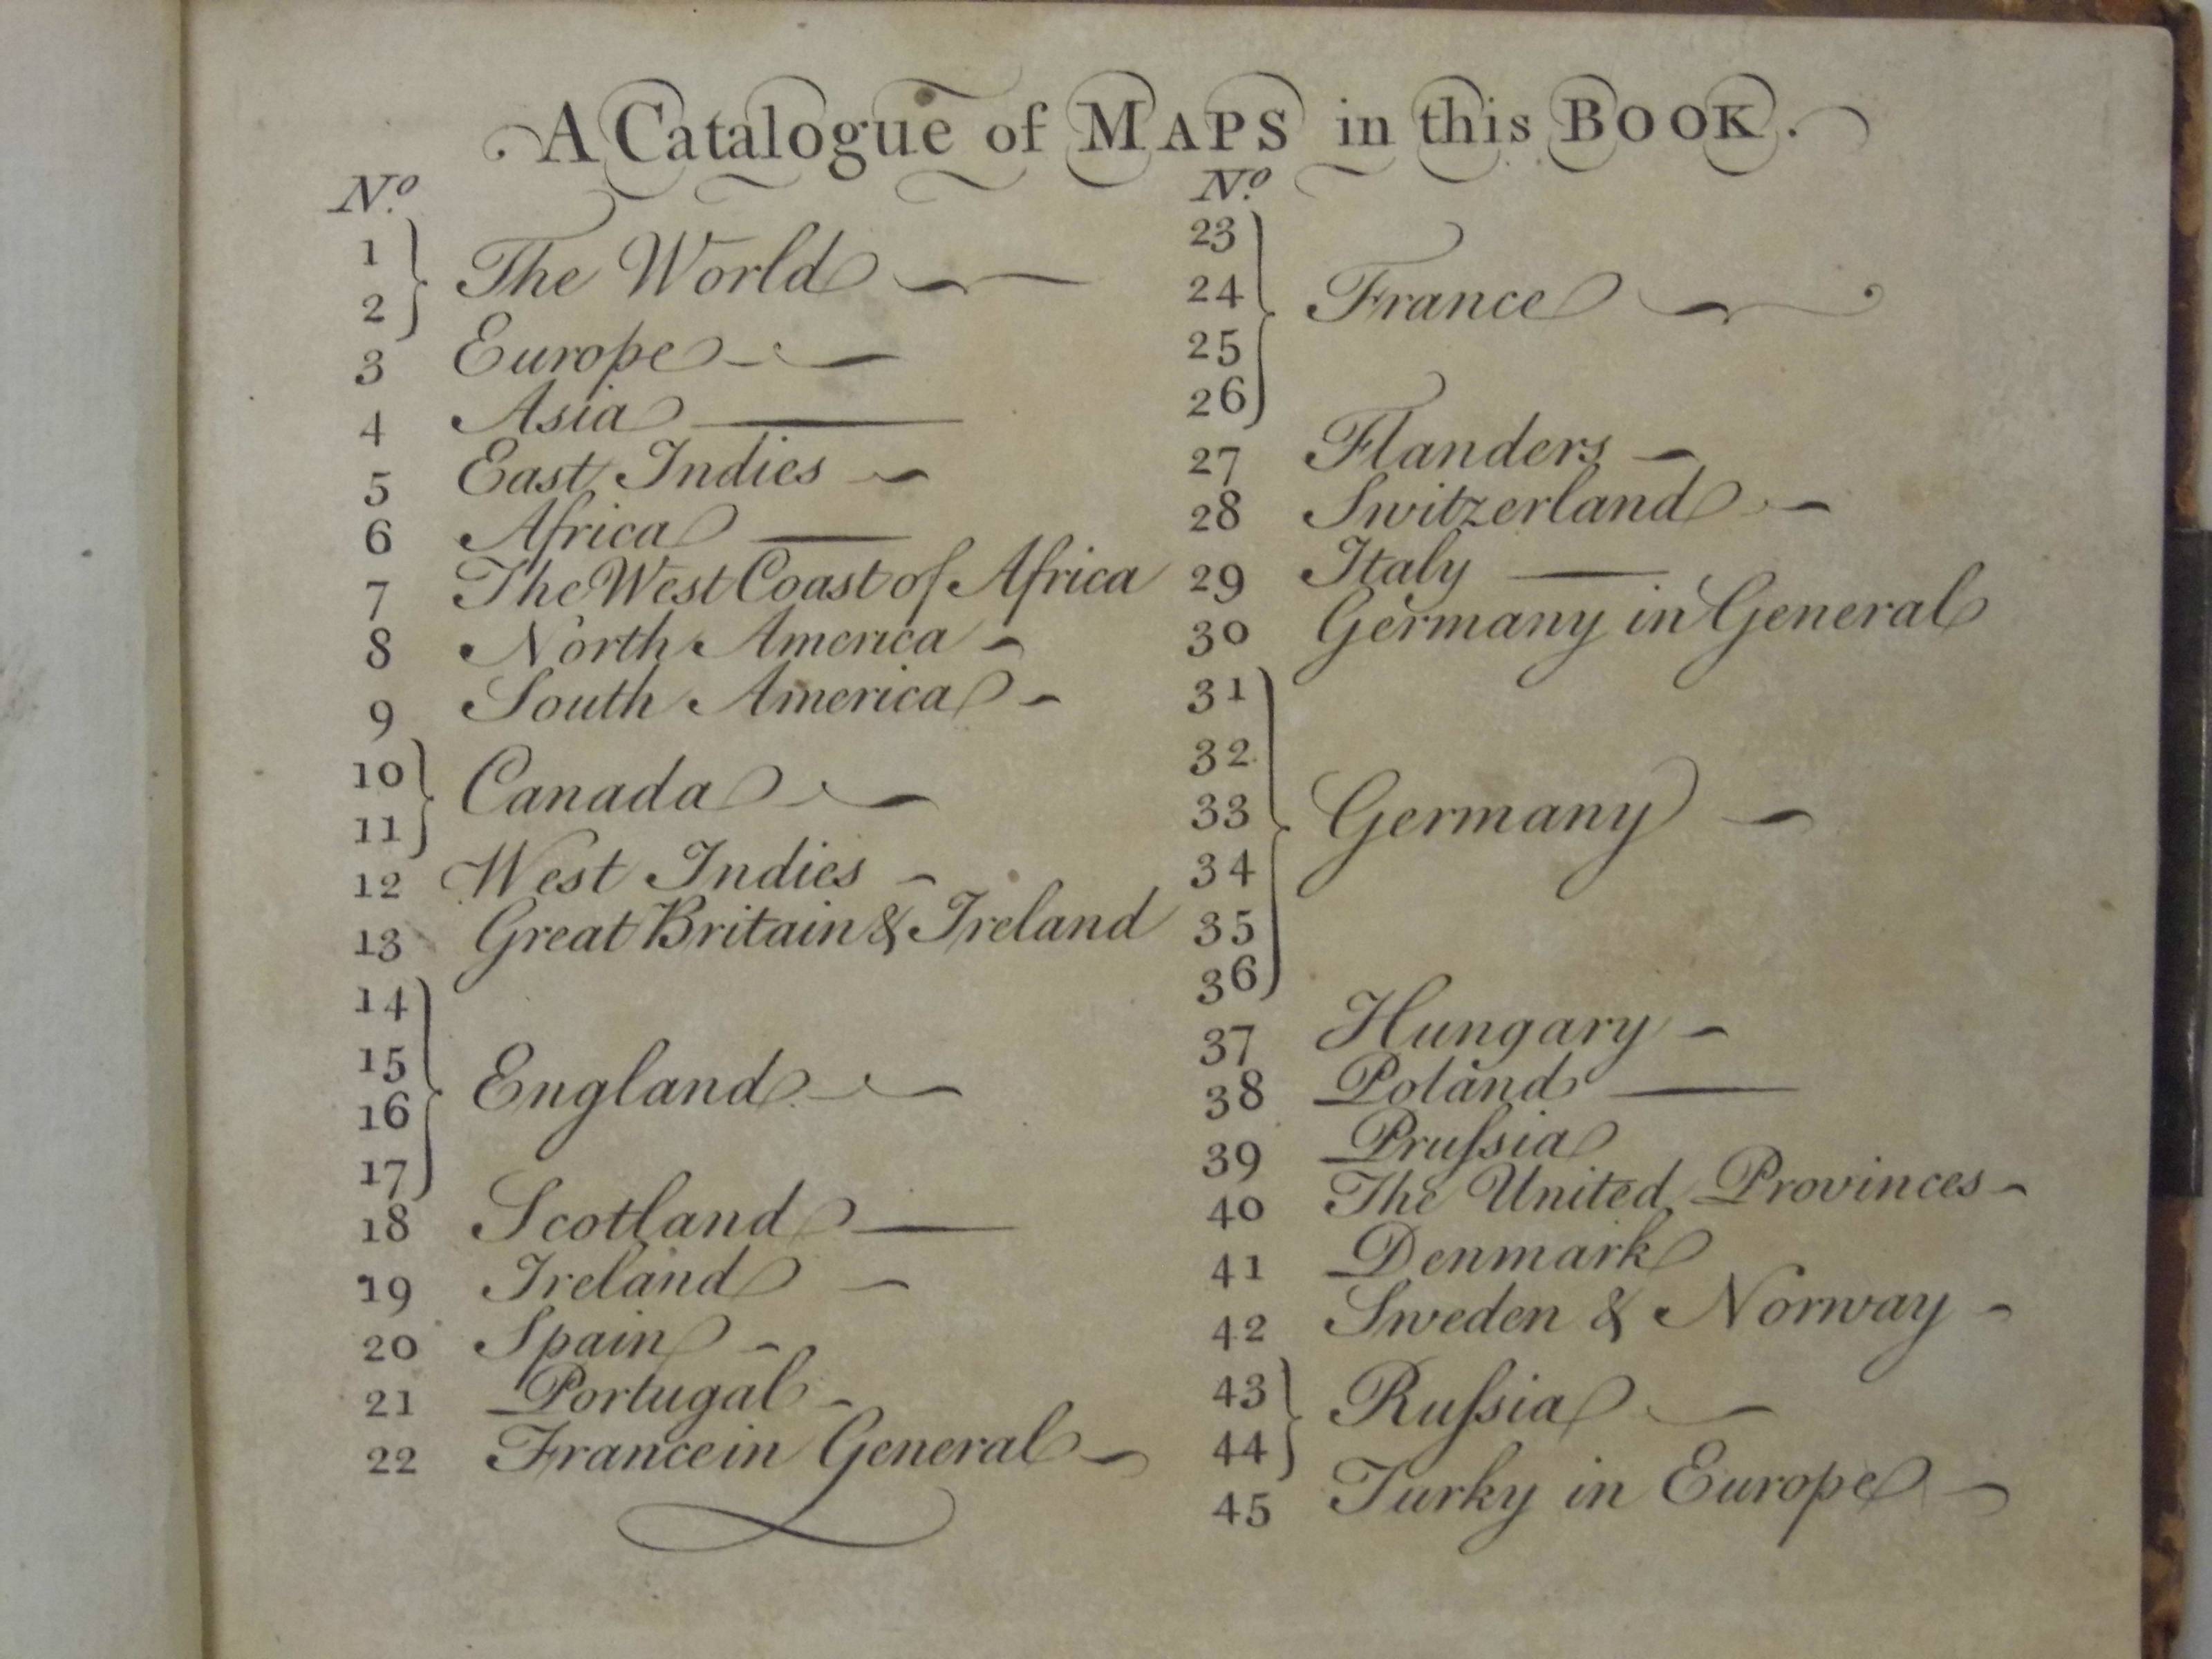 A Catalogue of MAPS in this BOOK.
No.
1
2
The World
3 Europe
4 Asia
5 East Indies
6 Africa
7 The West Coast of Africa
8 North America
9 South America
10
11
Canada
12 West Indies
13 Great Britain & Ireland
14
15
16
17
England
18 Scotland
19 Ireland
20 Spain
21 Portugal
22 France in General
No.
23
24
25
26
France
27 Flanders
28 Switzerland
29 Italy
30 Germany in General
31
32
33
34
35
36
Germany
37 Hungary
38 Poland
39 Pruſsia
40 The United Provinces
41 Denmark
42 Sweden & Norway
43
44
Ruſsia
45 Turky in Europe